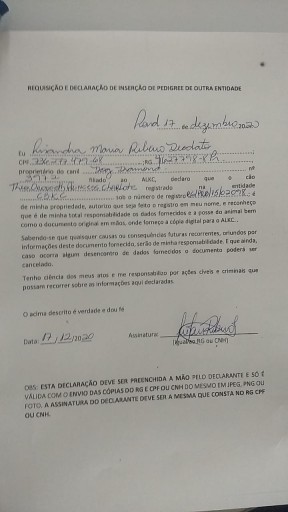 REQUISIÇÃO E DECLARAÇÃO DE INSERÇÃO DE PEDIGREE DE OUTRA ENTIDADE
17 de dezembro 2020
Eu Maria Ribeiro
CPF RG
proprietário do canil Dog Diamond nº
filiado ao ALKC, declaro que o cão
registrado na entidade
sob o número de registro e
de minha propriedade, autorizo que seja feito o registro em meu nome, e reconheço
que é de minha total responsabilidade os dados fornecidos e a posse do animal bem
como o documento original em mãos, onde forneço a cópia digital para o ALKC.
Sabendo-se que quaisquer causas ou consequências futuras recorrentes, oriundos por
informações deste documento fornecido, serão de minha responsabilidade. E que ainda,
caso ocorra algum desencontro de dados fornecidos o documento poderá ser
cancelado.
Tenho ciência dos meus atos e me responsabilizo por ações cíveis e criminais que
possam recorrer sobre as informações aqui declaradas.
O acima descrito é verdade e dou fé
Data: 17/12/2020 Assinatura:
(igual ao RG ou CNH)
OBS: ESTA DECLARAÇÃO DEVE SER PREENCHIDA A MÃO PELO DECLARANTE E SÓ É
VÁLIDA COM O ENVIO DAS CÓPIAS DO RG E CPF OU CNH DO MESMO EM JPEG, PNG OU
FOTO. A ASSINATURA DO DECLARANTE DEVE SER A MESMA QUE CONSTA NO RG CPF
OU CNH.